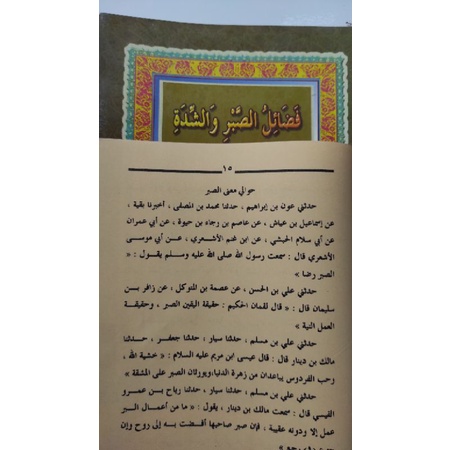 فَضَائِلُ الصَّبْرِ وَالشِّدَةِ
١٥
حوالي معنى الصبر
حدثني عون بن إبراهيم ، حدثنا محمد بن المصفى ، أخبرنا بقية ،
عن إسماعيل بن عياش ، عن عاصم بن رجاء بن حيوة ، عن أبي عمران
عن أبي سلام الحبشي ، عن ابن غنم الأشعري ، عن أبي موسى
الأشعري قال : سمعت رسول الله صلى الله عليه وسلم يقول : «
الصبر رضا »
حدثني علي بن الحسن ، عن عصمة بن المتوكل ، عن زافر بن
سليمان قال : « قال لقمان الحكيم : حقيقة اليقين الصبر ، وحقيقة
العمل النية »
حدثني علي بن مسلم ، حدثنا سيار ، حدثنا جعفر ، حدثنا
مالك بن دينار قال : قال عيسى ابن مريم عليه السلام : « خشية الله ،
وحب الفردوس يباعدان من زهرة الدنيا، ويورثان الصبر على المشقة »
حدثني علي بن مسلم ، حدثنا سيار ، حدثنا رياح بن عمرو
القيسي قال : سمعت مالك بن دينار ، يقول : « ما من أعمال البر
عمل إلا ودونه عقيبة ، فإن صبر صاحبها أفضت به إلى روح وإن